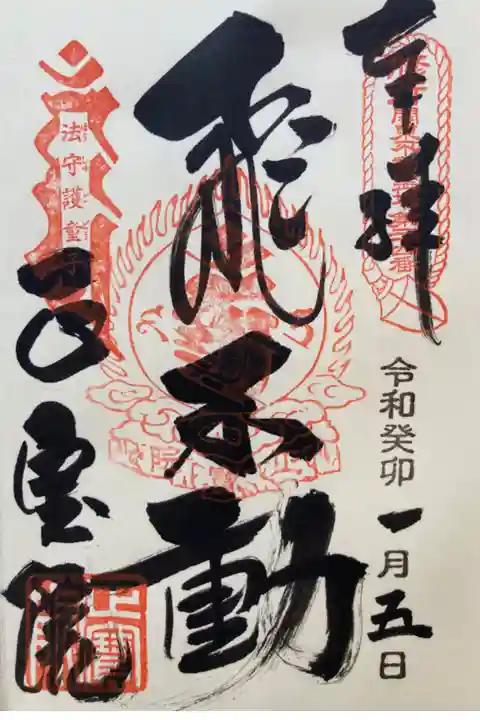 奉拝
令和癸卯一月五日
飛不動
法守護童子
正宝院